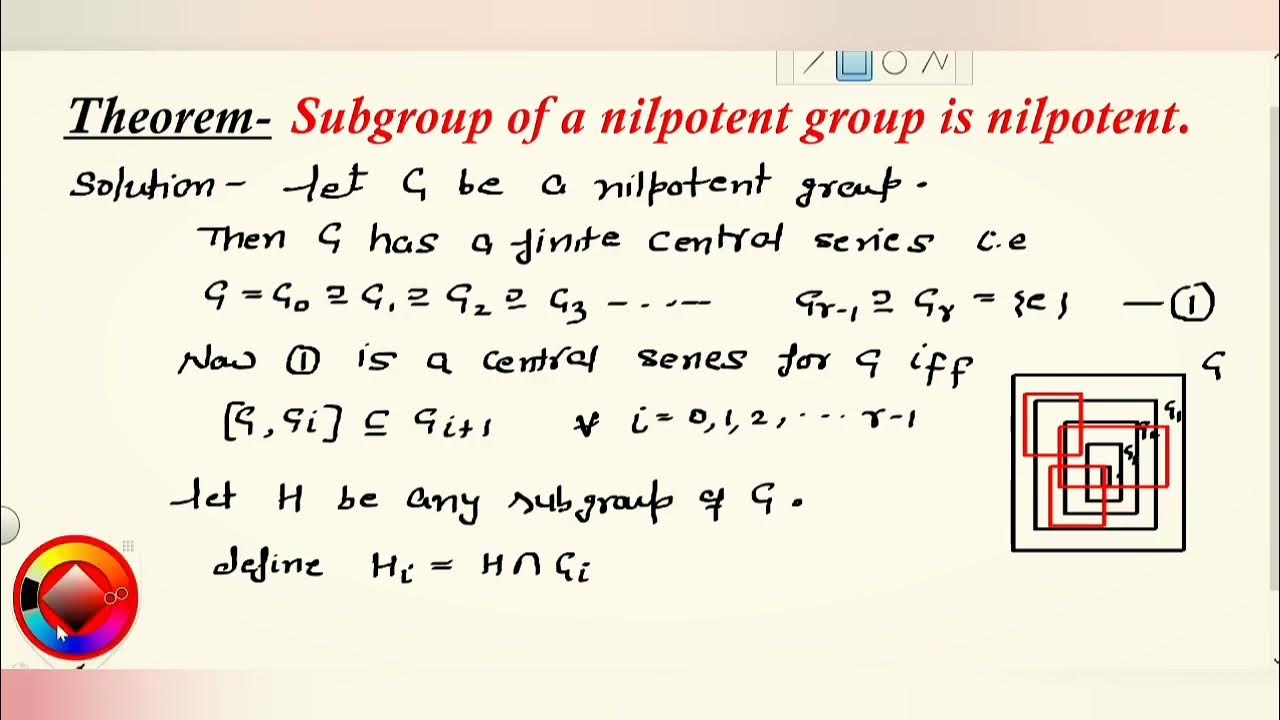 Theorem- Subgroup of a nilpotent group is nilpotent.
Solution - Let G be a nilpotent group.
Then G has a finite central series i.e
G = G₀ ⊇ G₁ ⊇ G₂ ⊇ G₃ ------ Gᵣ₋₁ ⊇ Gᵣ = {e} —①
Now ① is a central series for G iff
G
[G, Gᵢ] ⊆ Gᵢ₊₁ ∀ i = 0, 1, 2, ... r-1
G₁
Let H be any subgroup of G.
define Hᵢ = H ∩ Gᵢ